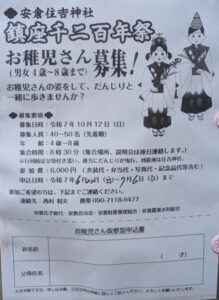 ◆安倉住吉神社
鎮座千二百年祭
お稚児さん募集!
(男女4歳~8歳まで)
お稚児さんの姿をして、だんじりと
一緒に歩きませんか?
◆募集要項◆
募集日時:令和7年10月12日(日)
募集人数:40~50名(先着順)
年 齢:4歳~8歳
集合時間:8時30分(集合場所、説明会は後日連絡します。)
参加費:6,000円(衣装代・弁当代・写真代・記念品代等含む)
申込日時:令和7年6月
参加ご希望の方は、下記までご連絡ください。
連絡先:西村 和夫 携帯 090-7118-0477
お稚児さん仮参加申込書
お名前
( 才)
父母氏名